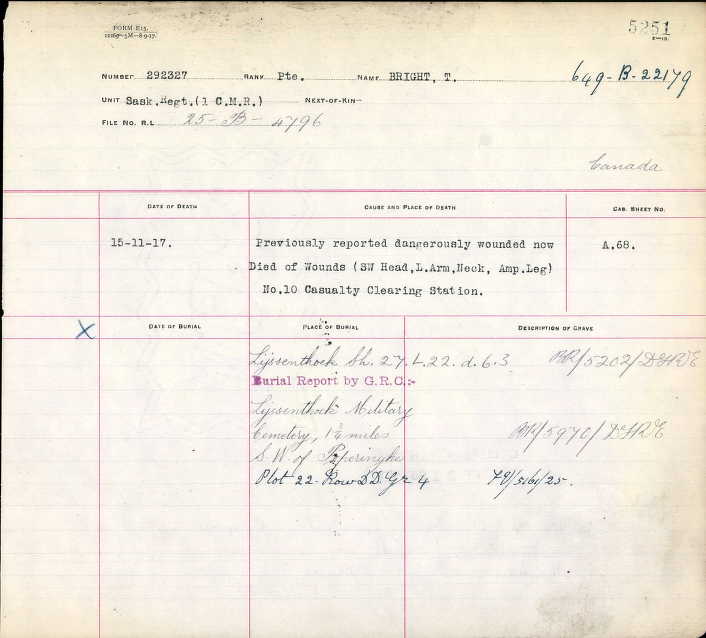 FORM E15.
5251
NUMBER 292327 RANK Pte. NAME BRIGHT, T. 649-B-22179
UNIT Sask.Regt.(1 C.M.R.) NEXT-OF-KIN
FILE NO. R.L 25-B-4796
Canada
DATE OF DEATH CAUSE AND PLACE OF DEATH CAS. SHEET NO.
15-11-17. Previously reported dangerously wounded now A.68.
Died of Wounds (SW Head,L.Arm,Neck, Amp.Leg)
No.10 Casualty Clearing Station.
X DATE OF BURIAL PLACE OF BURIAL DESCRIPTION OF GRAVE
Lijssenthoek Sh. 27.L.22.d.6.3 BR/5202/DGRE
Burial Report by G.R.C:-
Lijssenthoek Military
Cemetery, 1¾ miles BR/5970/DGRE
S.W of Poperinghe
Plot 22. Row DD. Gr 4